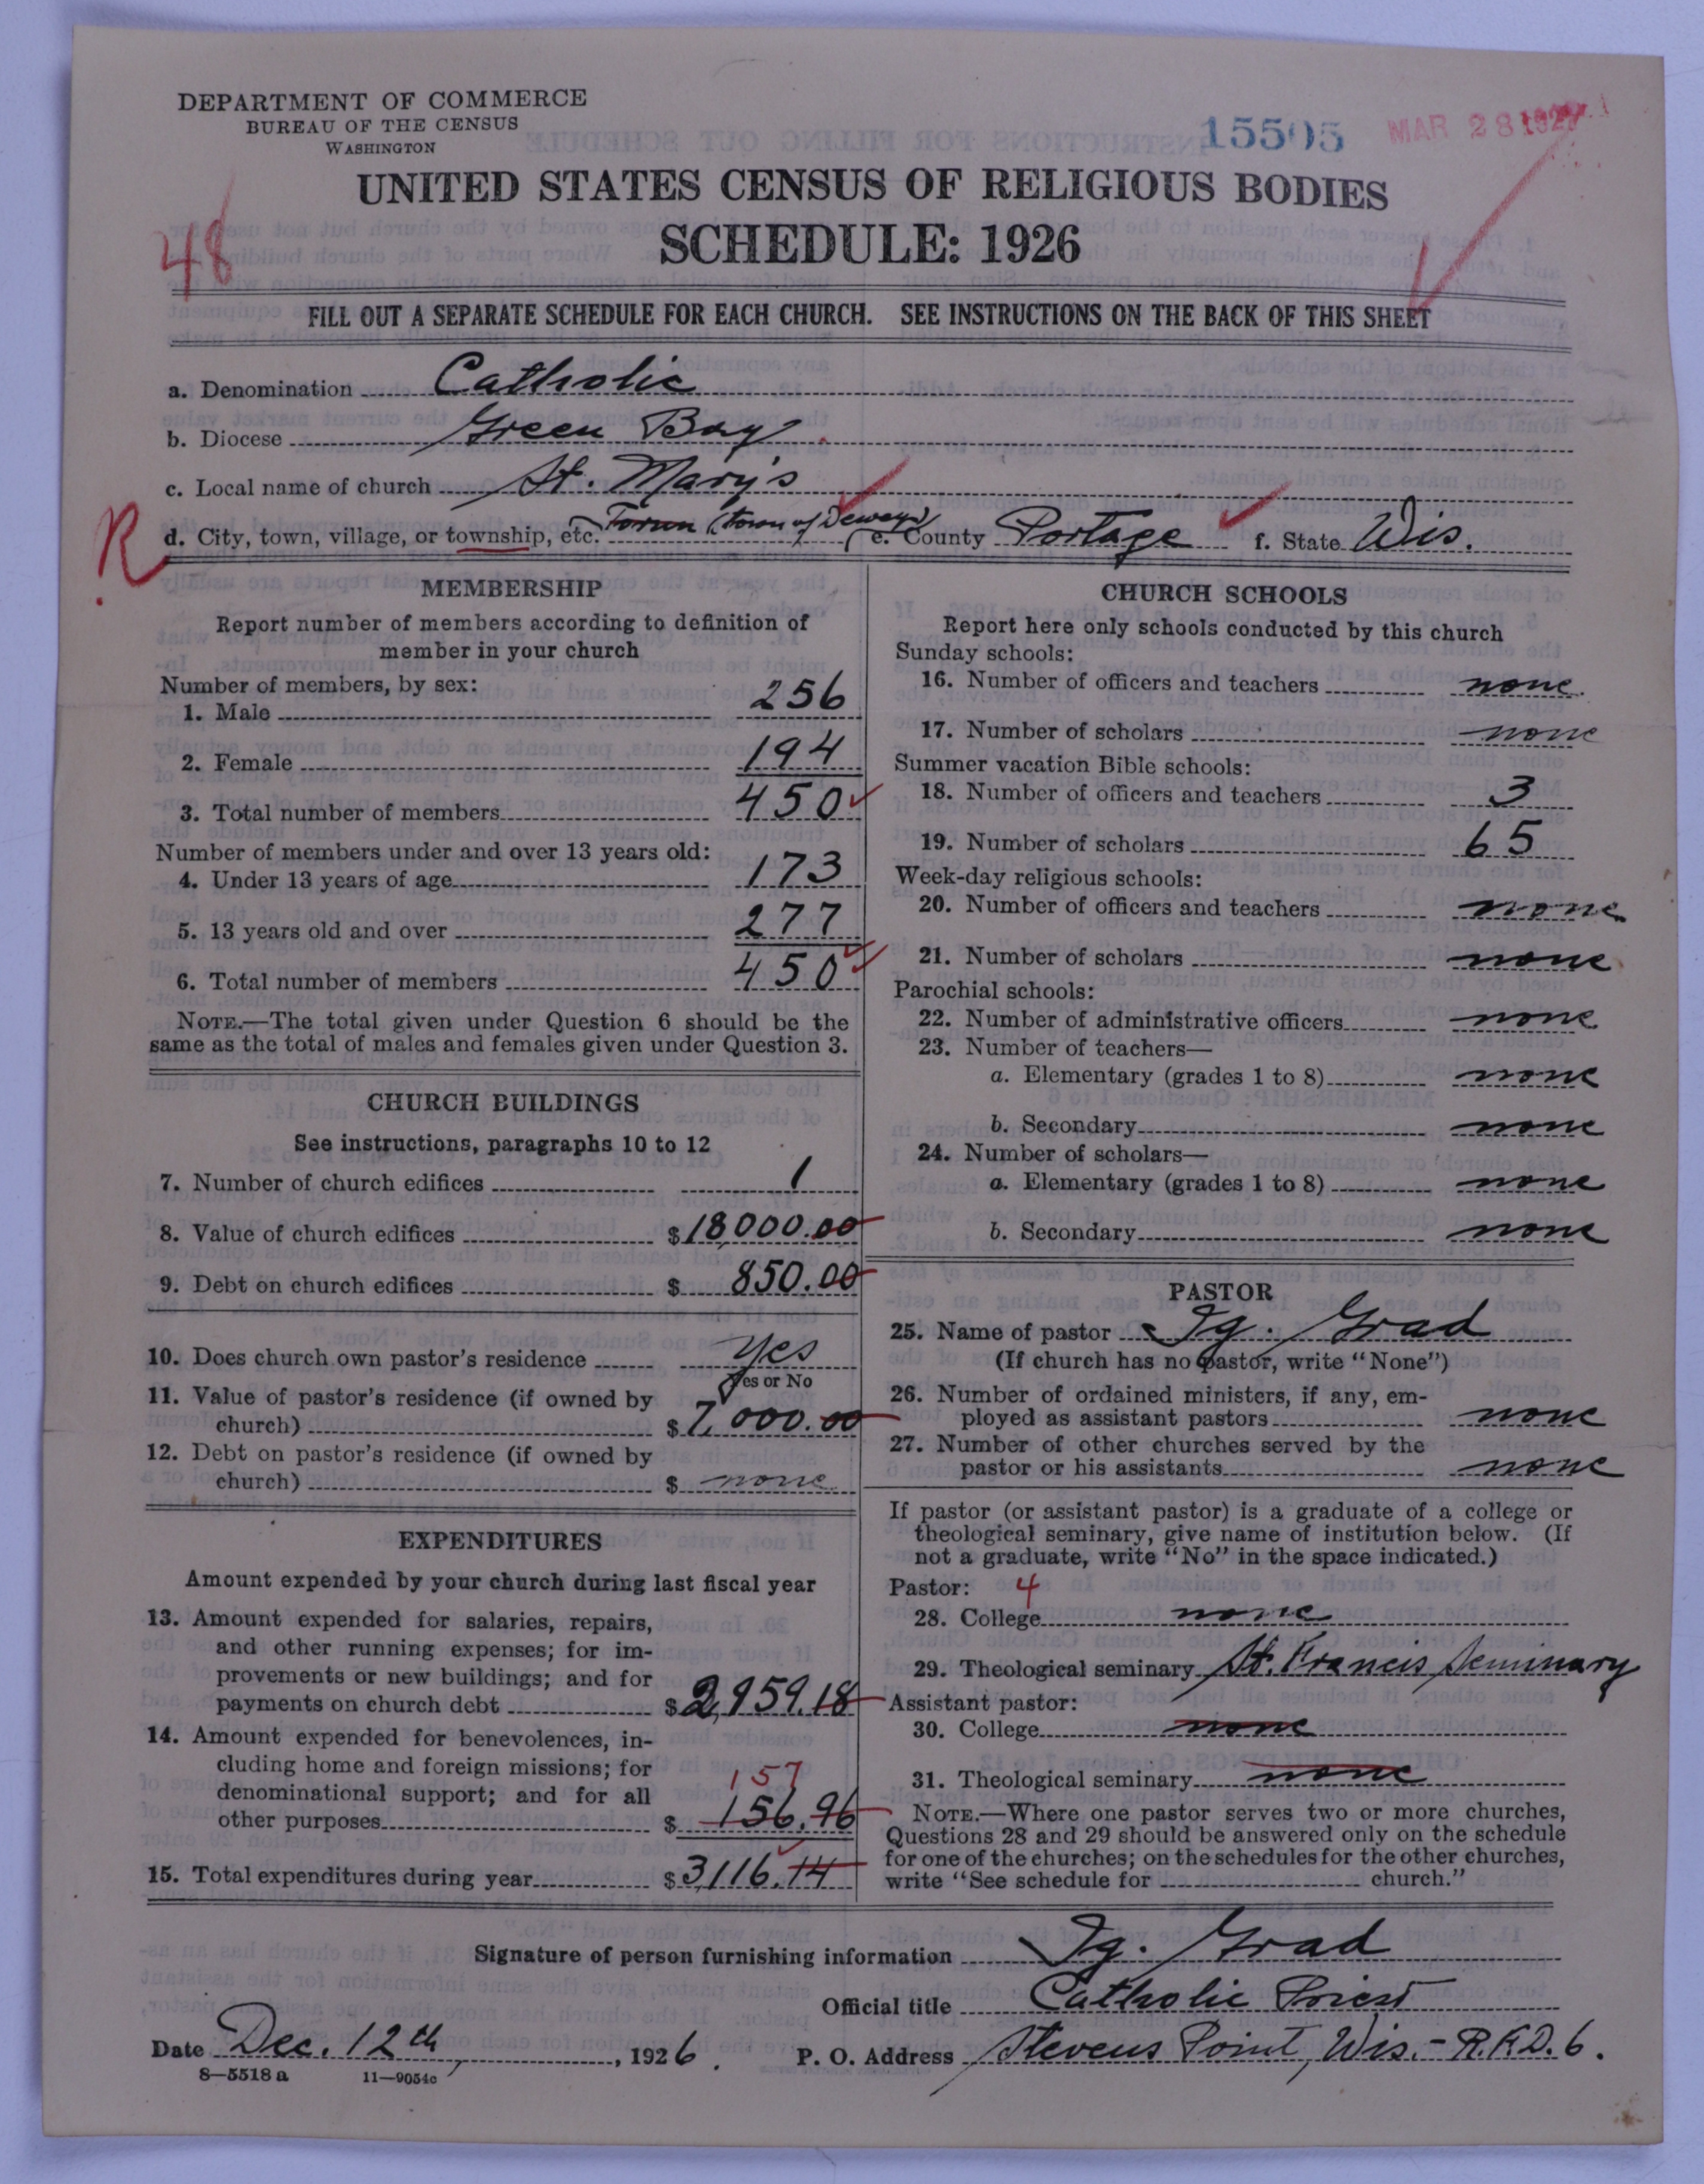 DEPARTMENT OF COMMERCE
BUREAU OF THE CENSUS
WASHINGTON
15505
MAR 28 1927
UNITED STATES CENSUS OF RELIGIOUS BODIES
SCHEDULE: 1926
48
FILL OUT A SEPARATE SCHEDULE FOR EACH CHURCH. SEE INSTRUCTIONS ON THE BACK OF THIS SHEET
a. Denomination Catholic
b. Diocese Green Bay
c. Local name of church St. Mary's
R
d. City, town, village, or township, etc. Torun (town of Dewey) e. County Portage f. State Wis.
MEMBERSHIP
Report number of members according to definition of
member in your church
Number of members, by sex:
1. Male 256
2. Female 194
3. Total number of members 450
Number of members under and over 13 years old:
4. Under 13 years of age 173
5. 13 years old and over 277
6. Total number of members 450
NOTE.—The total given under Question 6 should be the
same as the total of males and females given under Question 3.
CHURCH BUILDINGS
See instructions, paragraphs 10 to 12
7. Number of church edifices 1
8. Value of church edifices $18000.00
9. Debt on church edifices $ 850.00
10. Does church own pastor's residence yes
Yes or No
11. Value of pastor's residence (if owned by
church) $7,000.00
12. Debt on pastor's residence (if owned by
church) $ none
EXPENDITURES
Amount expended by your church during last fiscal year
13. Amount expended for salaries, repairs,
and other running expenses; for im-
provements or new buildings; and for
payments on church debt $2,959.18
14. Amount expended for benevolences, in-
cluding home and foreign missions; for
denominational support; and for all
157
other purposes $ 156.96
15. Total expenditures during year $3,116.14
CHURCH SCHOOLS
Report here only schools conducted by this church
Sunday schools:
16. Number of officers and teachers none
17. Number of scholars none
Summer vacation Bible schools:
18. Number of officers and teachers 3
19. Number of scholars 65
Week-day religious schools:
20. Number of officers and teachers none
21. Number of scholars none
Parochial schools:
22. Number of administrative officers none
23. Number of teachers—
a. Elementary (grades 1 to 8) none
b. Secondary none
24. Number of scholars—
a. Elementary (grades 1 to 8) none
b. Secondary none
PASTOR
25. Name of pastor Ig. Grad
(If church has no pastor, write "None")
26. Number of ordained ministers, if any, em-
ployed as assistant pastors none
27. Number of other churches served by the
pastor or his assistants none
If pastor (or assistant pastor) is a graduate of a college or
theological seminary, give name of institution below. (If
not a graduate, write "No" in the space indicated.)
Pastor: 4
28. College none
29. Theological seminary St. Francis Seminary
Assistant pastor:
30. College none
31. Theological seminary none
NOTE.—Where one pastor serves two or more churches,
Questions 28 and 29 should be answered only on the schedule
for one of the churches; on the schedules for the other churches,
write "See schedule for church."
Signature of person furnishing information Ig. Grad
Official title Catholic Priest
Date Dec. 12th, 1926. P. O. Address Stevens Point, Wis. - R.F.D. 6.
8—5518 a 11—9054c